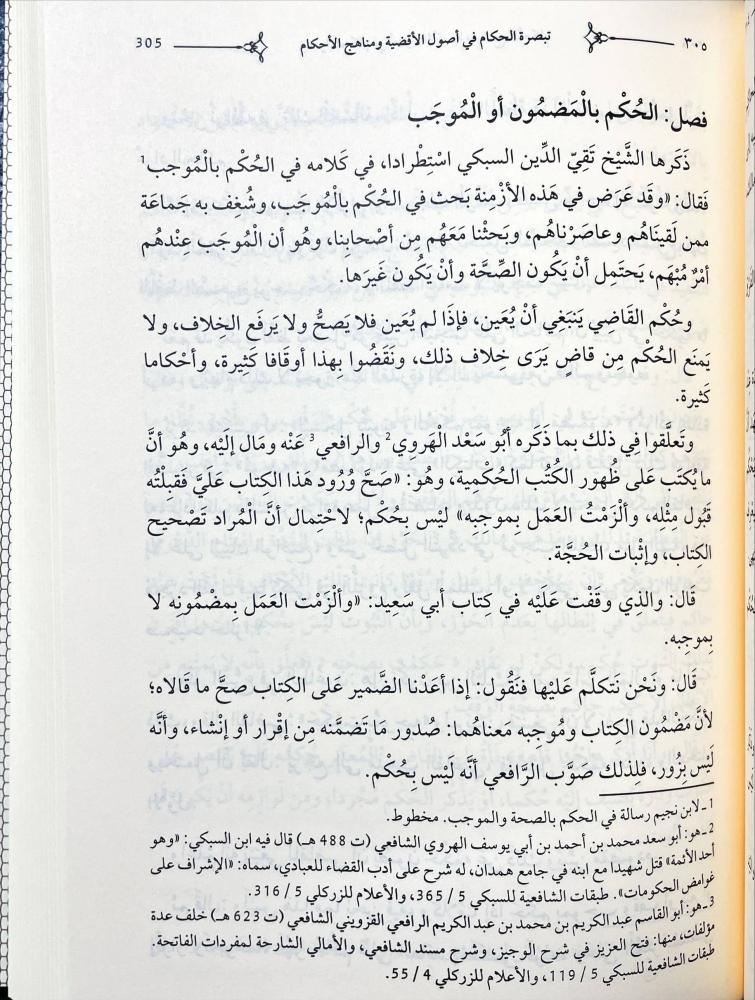 ٣٠٥ تبصرة الحكام في أصول الأقضية ومناهج الأحكام 305
فصل: الحُكْم بالْمَضمُون أو الْمُوجَب
ذَكَرها الشَّيْخ تَقِيّ الدِّين السبكي اسْتِطْرادا، في كَلامه في الحُكْم بالْمُوجب1
فَقال: «وقَد عَرَض في هَذه الأزْمِنة بَحث في الحُكْم بالْمُوجَب، وشُغف به جَماعَة
ممن لَقيناهُم وعاصَرْناهُم، وبَحثْنا مَعَهُم مِن أصْحابِنا، وهُو أن الْمُوجَب عِنْدهُم
أمْرٌ مُبْهَم، يَحتَمِل أنْ يَكُون الصِّحَّة وأنْ يَكُون غَيرَها.
وحُكْم القَاضِي يَنبَغِي أنْ يُعَين، فإذَا لم يُعَين فلا يَصحُّ ولا يَرفَع الخِلاف، ولا
يَمنَع الحُكْم مِن قاضٍ يَرَى خِلاف ذلك، ونَقَضُوا بِهذا أوقَافا كَثِيرة، وأحْكاما
كَثيرة.
وتَعلَّقوا فِي ذلك بما ذَكَره أبُو سَعْد الْهَروِي2 والرافعي3 عَنْه ومَال إلَيْه، وهُو أنَّ
ما يُكتَب عَلى ظُهور الكُتُب الحُكْمية، وهُو: «صَحَّ وُرُود هَذا الكِتاب عَلَيَّ فَقبِلْتُه
قَبُول مِثْله، وألْزَمْتُ العَمَل بِموجبِه» ليْس بِحُكْم؛ لاحْتِمال أنَّ الْمُراد تَصْحيح
الكِتاب، وإثْبات الحُجَّة.
قَال: والذِي وقَفْت عَلَيْه في كِتاب أبي سَعِيد: «وألْزَمْت العَمَل بِمضْمُونِه لا
بِموجبِه.
قَال: ونَحْن نَتكلَّم عَليْها فنَقُول: إذا أعَدْنا الضَّمير عَلى الكِتاب صحَّ ما قَالاه؛
لأنَّ مَضْمُون الكتاب ومُوجِبه مَعناهُما: صُدور مَا تَضمَّنه من إقْرار أو إنْشاء، وأنَّه
لَيْس بِزُور، فلِذلك صَوَّب الرَّافعي أنَّه لَيْس بِحُكْم.
1 ـ لابن نجيم رسالة في الحكم بالصحة والموجب. مخطوط.
2 ـ هو: أبو سعد محمد بن أحمد بن أبي يوسف الهروي الشافعي (ت 488 هـ) قال فيه ابن السبكي: «وهو
أحد الأئمة» قتل شهيدا مع ابنه في جامع همدان، له شرح على أدب القضاء للعبادي، سماه: «الإشراف على
غوامض الحكومات». طبقات الشافعية للسبكي 5 / 365، والأعلام للزركلي 5 / 316.
3 ـ هو: أبو القاسم عبد الكريم بن محمد بن عبد الكريم الرافعي القزويني الشافعي (ت 623 هـ) خلف عدة
مؤلفات، منها: فتح العزيز في شرح الوجيز، وشرح مسند الشافعي، والأمالي الشارحة لمفردات الفاتحة.
طبقات الشافعية للسبكي 5 / 119، والأعلام للزركلي 4 / 55.